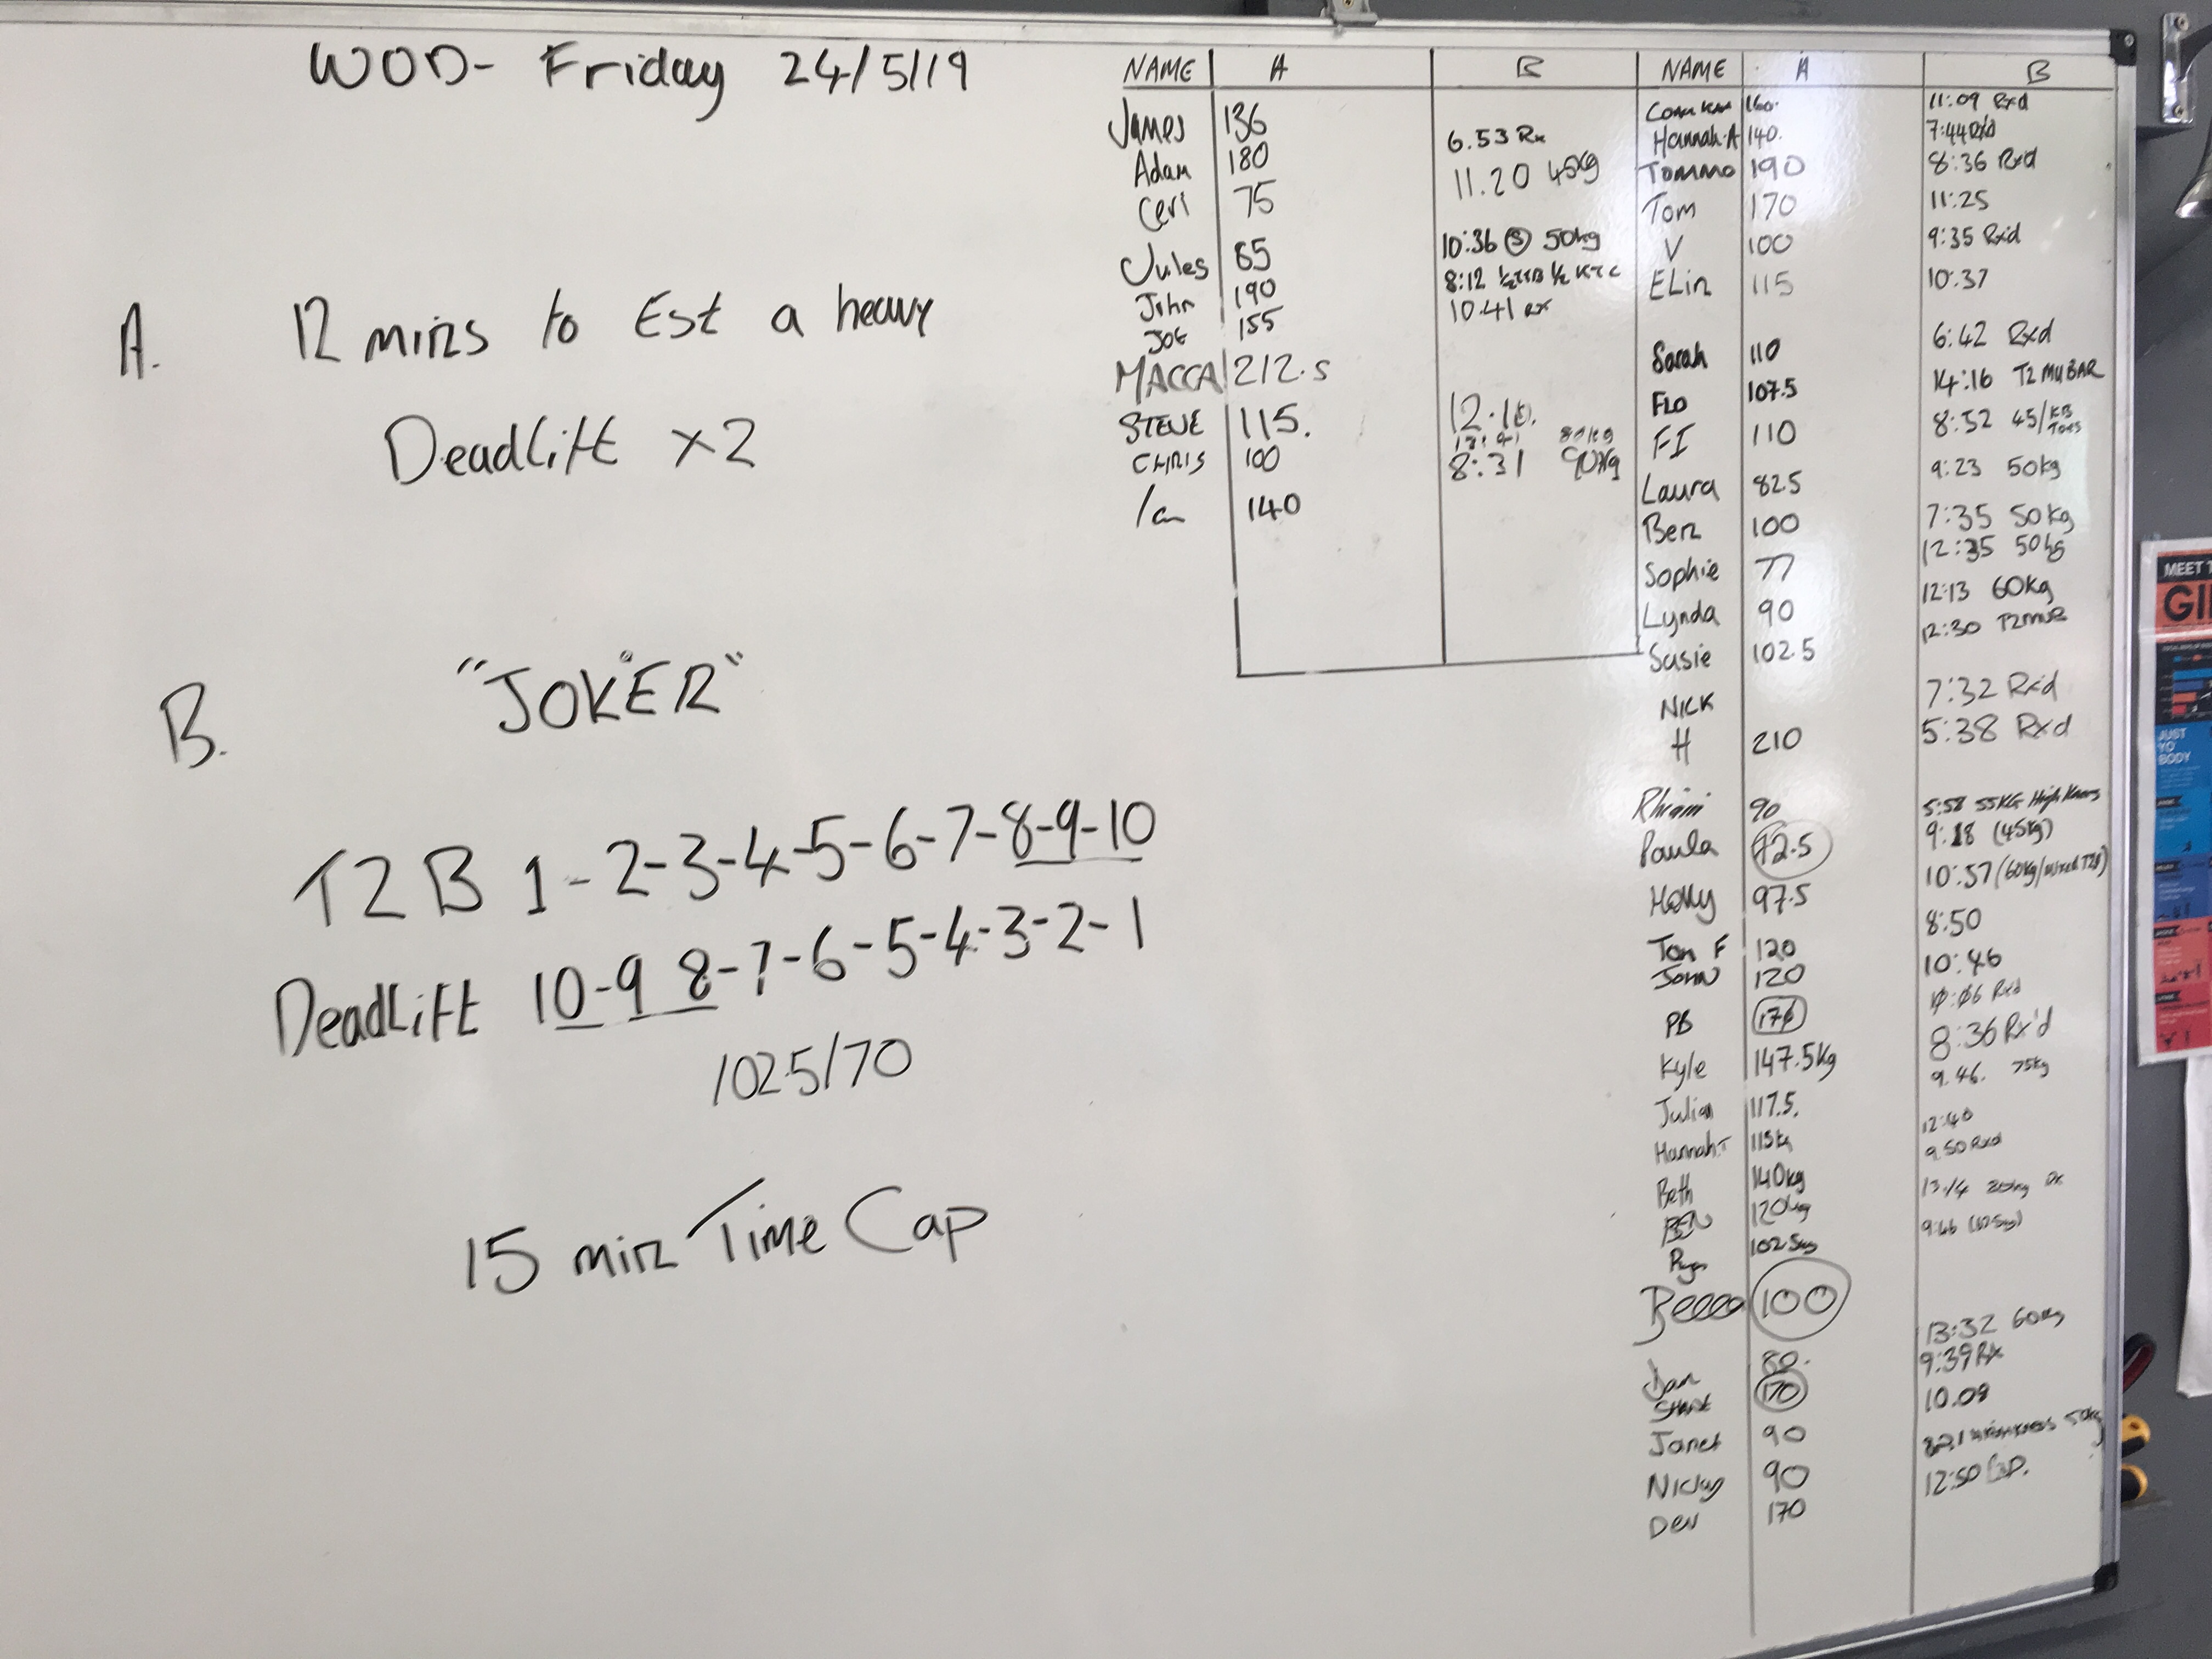 WOD- Friday 24/5/19
A. 12 mins to Est a heavy
Deadlift x2
B. "JOKER"
T2B 1-2-3-4-5-6-7-8-9-10
Deadlift 10-9 8-7-6-5-4-3-2-1
102.5/70
15 min Time Cap
NAME A B
James 136
6.53 Rx
Adam 180
11.20 45kg
Ceri 75
10:36 50kg
Jules 85
8:12 1/2 1/2 KTC
John 190
10.41 rx
JOE 155
MACCA 212.5
STEVE 115.
CHRIS 100
8:31
Ian 140
NAME A B
160. 11:09 Rxd
Hannah.A 140. 7:44 Rxd
Tommo 190 8:36 Rxd
Tom 170 11:25
V 100 9:35 Rxd
ELin 115 10:37
Sarah 110 6:42 Rxd
FLO 107.5 14:16 T2 MU BAR
FI 110 8:52 45/KB
Laura 82.5 9:23 50kg
Ben 100 7:35 50kg
Sophie 77 12:35 50kg
Lynda 90 12:13 60kg
Susie 102.5 12:30
NICK 7:32 Rxd
H 210 5:38 Rxd
90 5:58 55KG High Knees
Paula 9:18 (45kg)
Holly 97.5 10:57 (60kg/mixed T2B)
Tom F 120 8:50
JOHN 120 10:46
PB Rxd
Kyle 147.5kg 8:36 Rx'd
Julian 117.5. 9.46. 75kg
Hannah.T 115kg 12:40
Beth 140kg 9.50 Rxd
BEN 120kg
102.5kg
100
13:32 60kg
80.
9:39 Rx
170
10.09
Janet 90
50kg
Nicky 90
12:50
Dev 170
MEET T
GI
JUST
YO
BODY